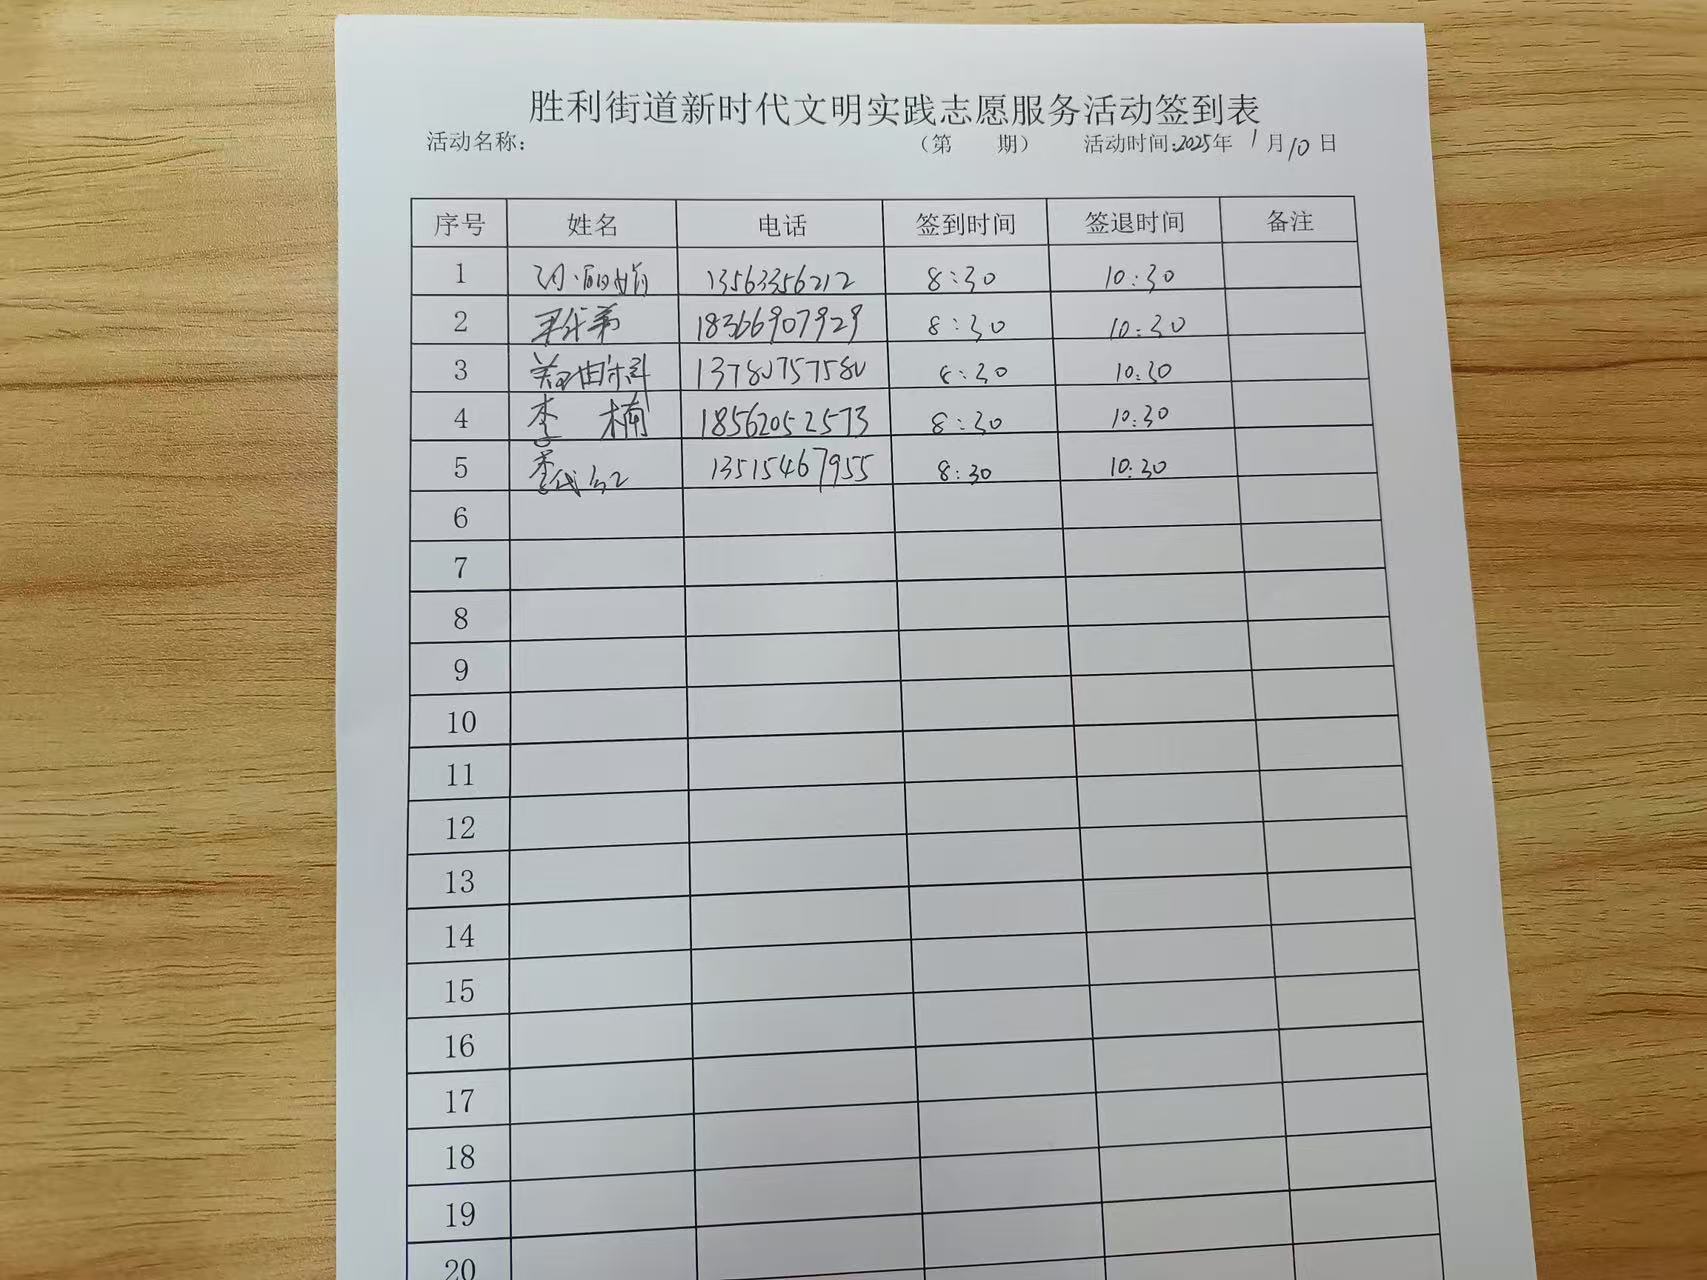 胜利街道新时代文明实践志愿服务活动签到表
活动名称: （第 期） 活动时间:2025年 1月10日
序号 姓名 电话 签到时间 签退时间 备注
1 13563356212 8:30 10:30
2 18366907929 8:30 10:30
3 8:30 10:30
4 李 楠 18562052573 8:30 10:30
5 13515467955 8:30 10:30
6
7
8
9
10
11
12
13
14
15
16
17
18
19
20